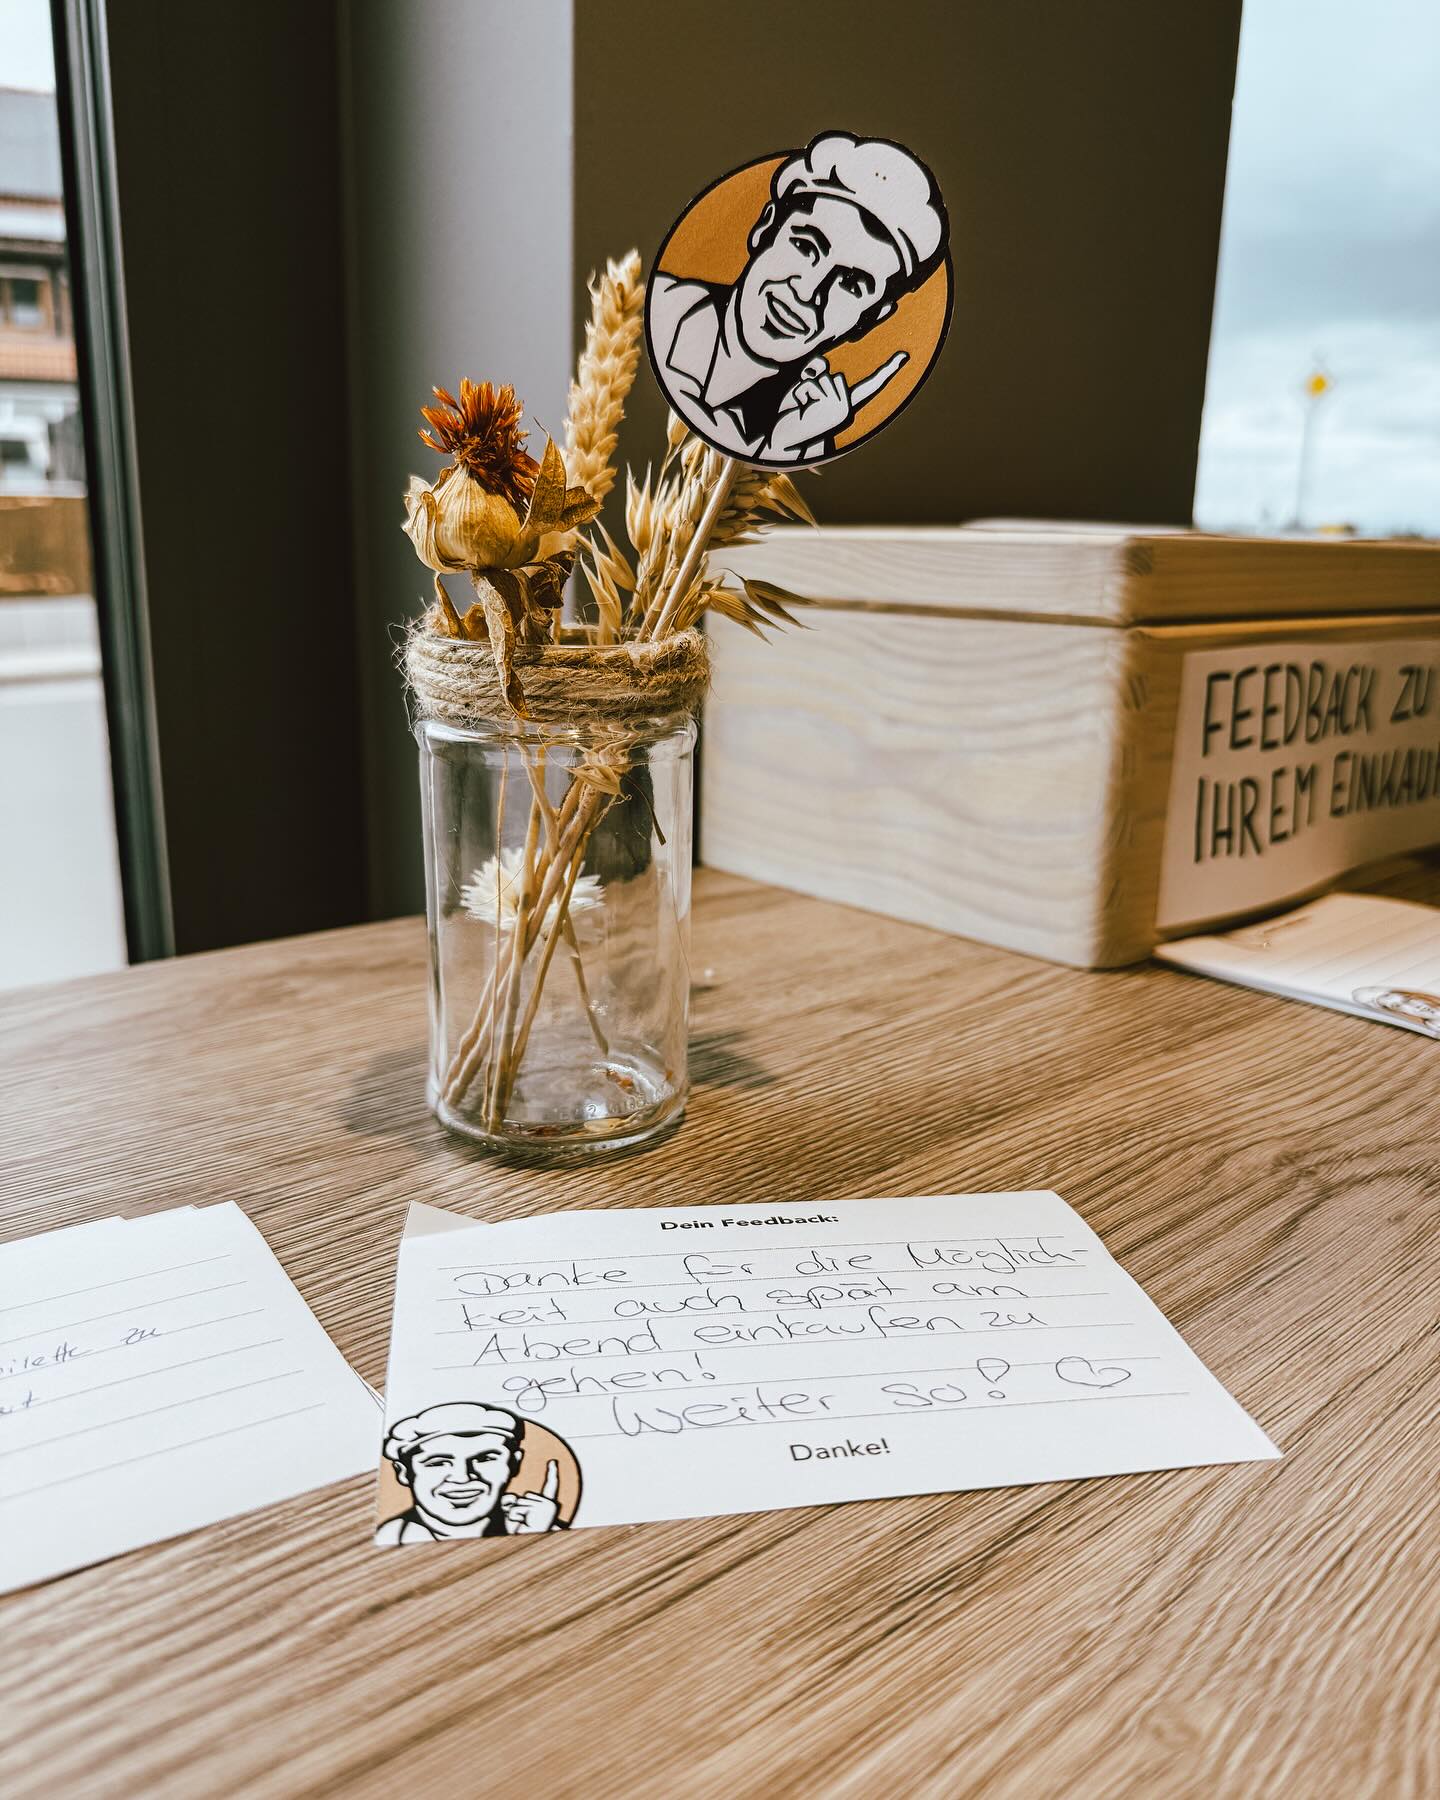 FEEDBACK ZU
IHREM
Dein Feedback:
Danke für die Möglich-
keit auch spät am
Abend einkaufen zu
gehen!
Weiter so!
Danke!
zu